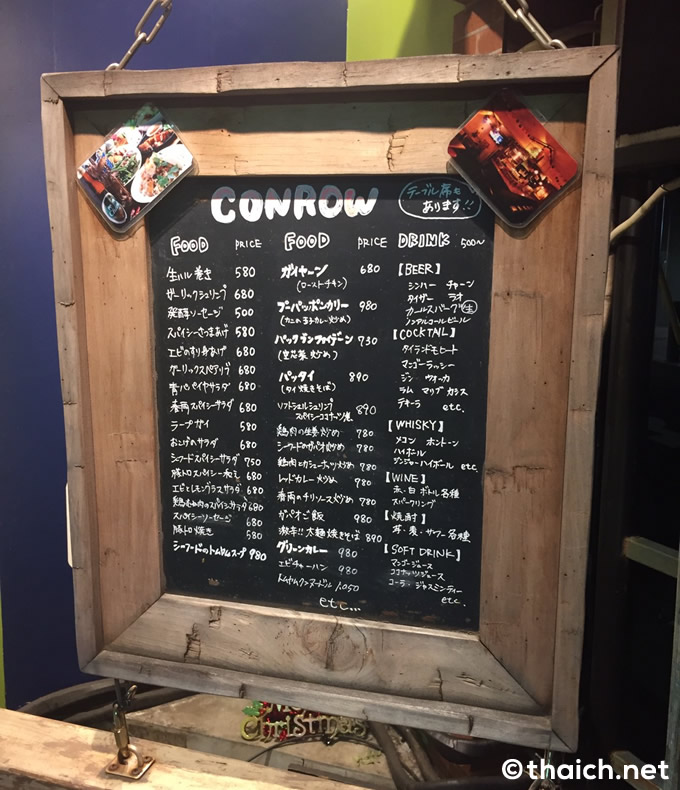 CONROW
テーブル席も
あります!!
FOOD PRICE
生ハル巻き 580
ガーリックシュリンプ 680
発酵ソーセージ 500
スパイシーさつまあげ 580
エビのすり身あげ 680
ガーリックスペアリブ 680
青パパイヤサラダ 680
春雨スパイシーサラダ 680
ラープガイ 580
おこげのサラダ 680
シーフードスパイシーサラダ 750
豚トロスパイシー和え 680
エビとレモングラスサラダ 680
鶏むね肉のスパイシサラダ 680
スパイシーソーセージ 680
豚トロ焼き 580
シーフードのトムヤムスープ 980
FOOD PRICE
ガイヤーン 680
(ローストチキン)
プーパッポンカリー 980
(カニの玉子カレー炒め)
パックブンファイデーン 730
(空芯菜炒め)
パッタイ 890
(タイ焼きそば)
ソフトシェルシュリンプ
スパイシーココナッツ煮 890
鶏肉の生姜炒め 780
シーフードのガパオ炒め 780
鶏肉とカシューナッツ炒め 780
レッドカレー炒め 780
春雨のチリソース炒め 780
ガパオご飯 980
激辛!!太麺焼きそば 890
グリーンカレー 980
エビチャーハン 980
トムヤムクンヌードル 1,050
etc...
DRINK 500~
【BEER】
シンハー チャーン
タイガー ラオ
カールスバーグ 生
ノンアルコールビール
【COCKTAIL】
タイランドモヒート
マンゴーラッシー
ジン ウォッカ
ラム マリブ カシス
テキーラ etc.
【WHISKY】
メコン ホントーン
ハイボール
ジンジャーハイボール etc.
【WINE】
赤・白 ボトル各種
スパークリング
【焼酎】
芋・麦・サワー各種
【SOFT DRINK】
マンゴージュース
ココナッツジュース
コーラ・ジャスミンティー
etc.
Christmas
©thaich.net